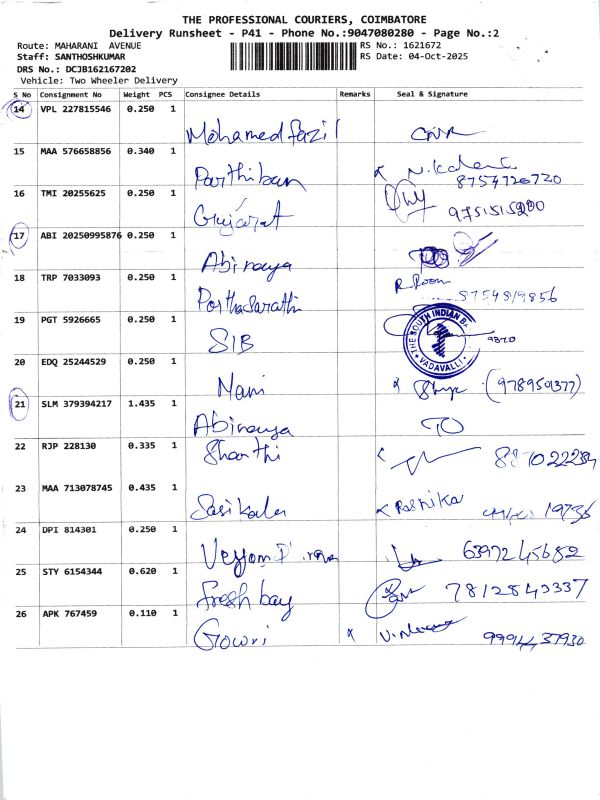 THE PROFESSIONAL COURIERS, COIMBATORE
Delivery Runsheet - P41 - Phone No.:9047080280 - Page No.:2
Route: MAHARANI AVENUE RS No.: 1621672
Staff: SANTHOSHKUMAR RS Date: 04-Oct-2025
DRS No.: DCJB162167202
Vehicle: Two Wheeler Delivery
S No Consignment No Weight PCS Consignee Details Remarks Seal & Signature
14 VPL 227815546 0.250 1
Mohamed fazil
15 MAA 576658856 0.340 1
Parthiban
8754726720
16 TMI 20255625 0.250 1
Gujarat 9751515200
17 ABI 20250995876 0.250 1
Abinaya
18 TRP 7033093 0.250 1
Parthasarathi 8754819856
19 PGT 5926665 0.250 1
SIB THE SOUTH INDIAN BA VADAVALLI
20 EDQ 25244529 0.250 1
Mani
21 SLM 379394217 1.435 1
Abinaya
22 RJP 228130 0.335 1
Shanthi
23 MAA 713078745 0.435 1
Sasikala Rashika 19736
24 DPI 814301 0.250 1
6397245682
25 STY 6154344 0.620 1
Fresh bay 7812842337
26 APK 767459 0.110 1
Gowri 9994437930